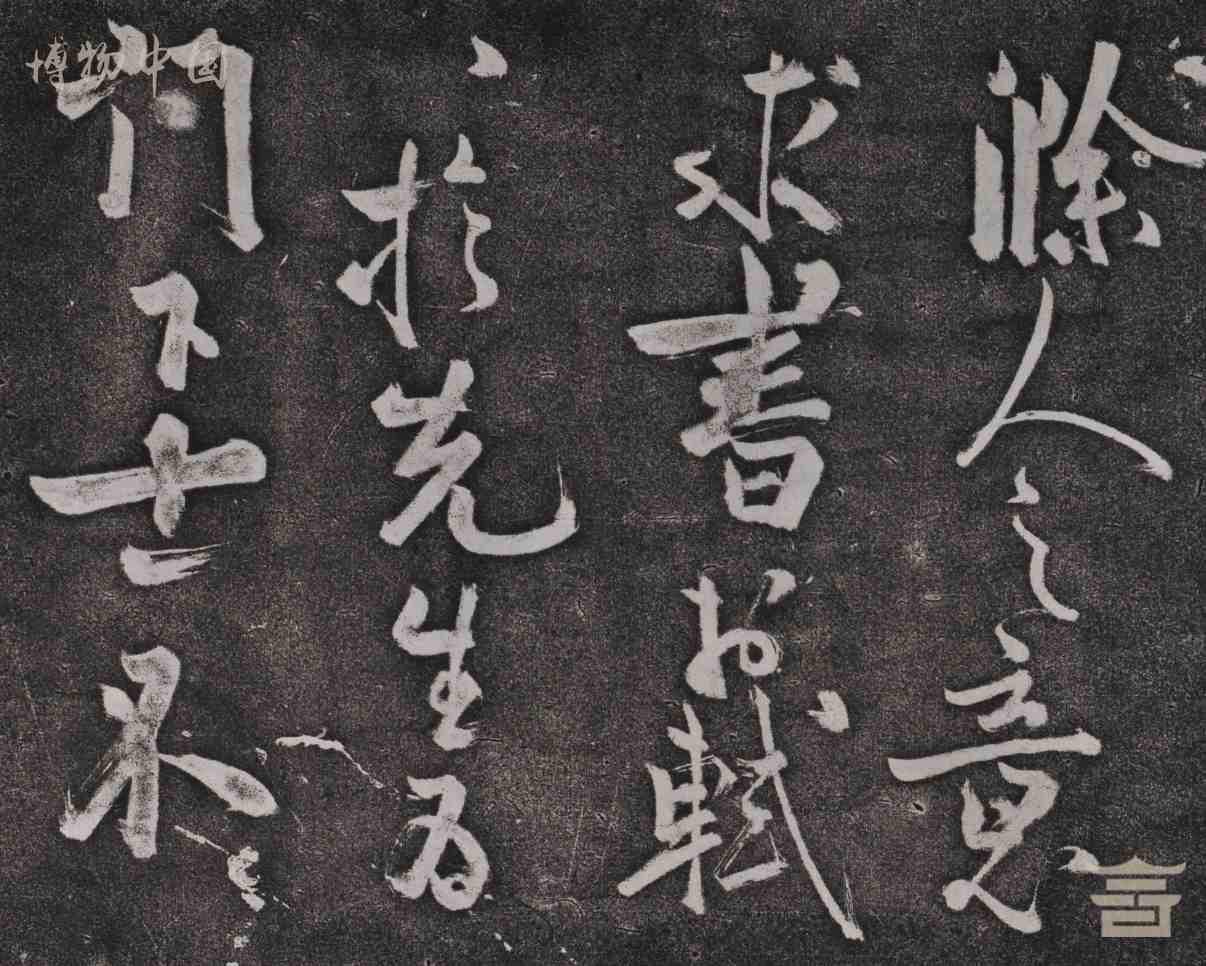 博物中国
滁人之意
求書於軾
〻於先生為
門下士不